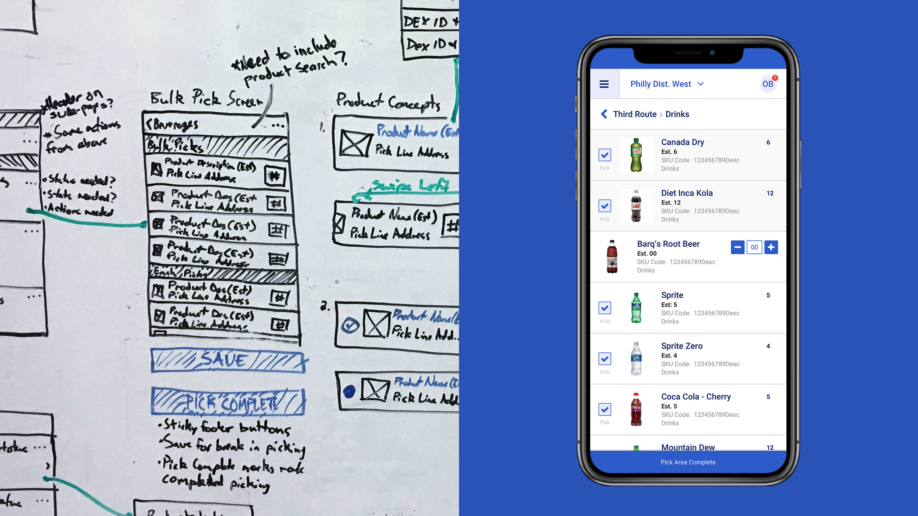 DEX ID
Dex ID
*Need to include
product search?
*Header on
sub-pages?
*Same actions
from above
• Status needed?
• State needed?
• Actions needed
Bulk Pick Screen
< Beverages ...
Bulk Picks
Product Description (Est)
Pick Line Address
#
Product Des (Est
Pick Line Address
#
Product Des (Est)
Pick Line Address
#
Product Des (Est)
Pick Line Address
#
Each Picks
Product Des (Est)
Pick Line Address
#
Product Des (Est)
Pick Line Address
#
SAVE
PICK COMPLETE
• Sticky footer buttons
• Save for break in picking
• Pick Complete marks
completed picking
Product Concepts
1.
Product Name (Est
Pick Line Address
Swipe Left
Product Name (Est)
Pick Line Address
#
2.
Product Name (E
Pick Line Add..
Product Name (E
Pick Line Add
Philly Dist. West
OB
1
Third Route > Drinks
Canada Dry 6
Est. 6
SKU Code: 123456789Desc
Drinks
Pick
Diet Inca Kola 12
Est. 12
SKU Code: 123456789Desc
Drinks
Pick
Barq's Root Beer
Est. 00
SKU Code: 123456789Desc
Drinks
− 00 +
Sprite 5
Est: 5
SKU Code: 123456789Desc
Drinks
Pick
Sprite Zero 4
Est. 4
SKU Code: 123456789Desc
Drinks
Pick
Coca Cola - Cherry 5
Est. 5
SKU Code: 123456789Desc
Drinks
Pick
Mountain Dew 12
Pick Area Complete